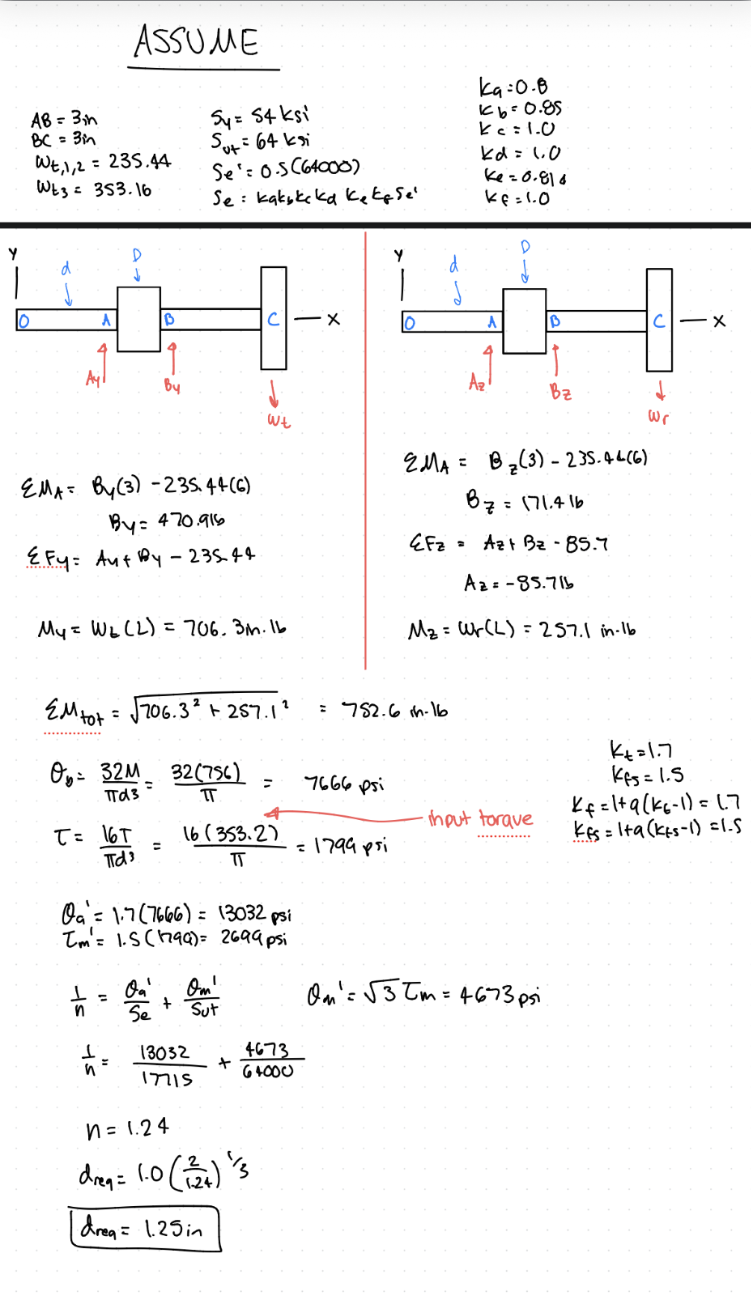 ASSUME
AB = 3in
BC = 3in
Wt,1,2 = 235.44
Wt3 = 353.16
Sy = 54 ksi
Sut = 64 ksi
Se' = 0.5(64000)
Se = kakbkckd kekfSe'
ka = 0.8
kb = 0.85
kc = 1.0
kd = 1.0
ke = 0.818
kf = 1.0
Y
d
D
O
A
B
C
X
Ay
By
Wt
ΣMA = By(3) - 235.44(6)
By = 470.9lb
ΣFy = Ay + By - 235.44
My = Wt(L) = 706.3in.lb
Y
d
D
O
A
B
C
X
Az
Bz
Wr
ΣMA = Bz(3) - 235.44(6)
Bz = 171.4 lb
ΣFz = Az + Bz - 85.7
Az = -85.7lb
Mz = Wr(L) = 257.1 in-lb
ΣMtot = √706.3² + 257.1² = 752.6 in-lb
θb = 32M/πd3 = 32(756)/π = 7666 psi
τ = 16T/πd³ = 16(353.2)/π = 1799 psi
input torque
kt = 1.7
kfs = 1.5
kf = 1+q(kt-1) = 1.7
kfs = 1+q(kts-1) = 1.5
θa' = 1.7(7666) = 13032 psi
τm' = 1.5(1799) = 2699 psi
1/n = θa'/Se + θm'/Sut
θm' = √3 τm = 4673 psi
1/n = 13032/17715 + 4673/64000
n = 1.24
dreq = 1.0(2/1.24)^1/3
dreq = 1.25in